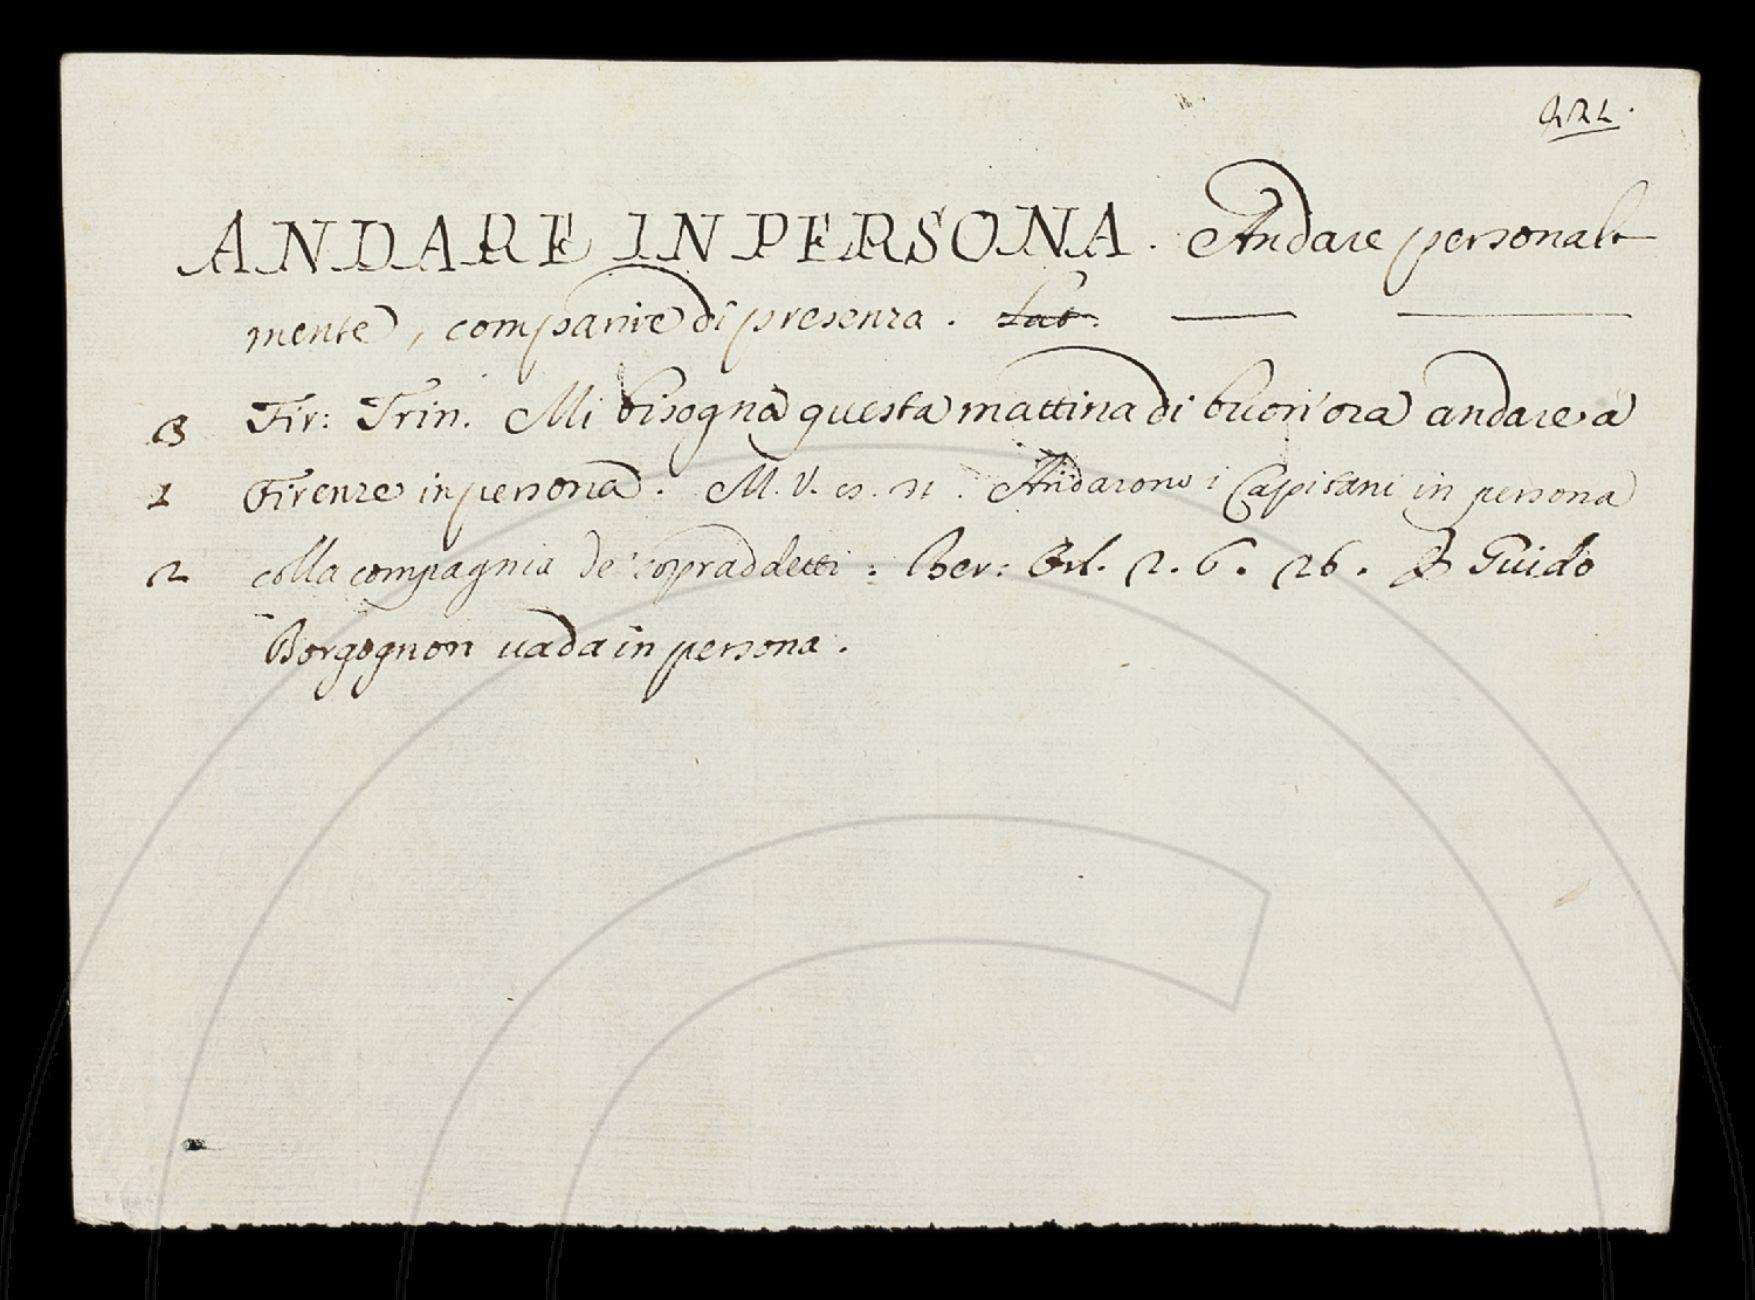 ANDARE IN PERSONA. Andare personal
mente, comparire di presenza. Lat.
3 Fir: Trin. Mi bisogna questa mattina di buon'ora andare a
1 Firenze in persona. M. V. Andarono i Capitani in persona
2 colla compagnia de' sopraddetti: Ber: Orl. 2. 6. 26. Guido
Borgognon vada in persona.